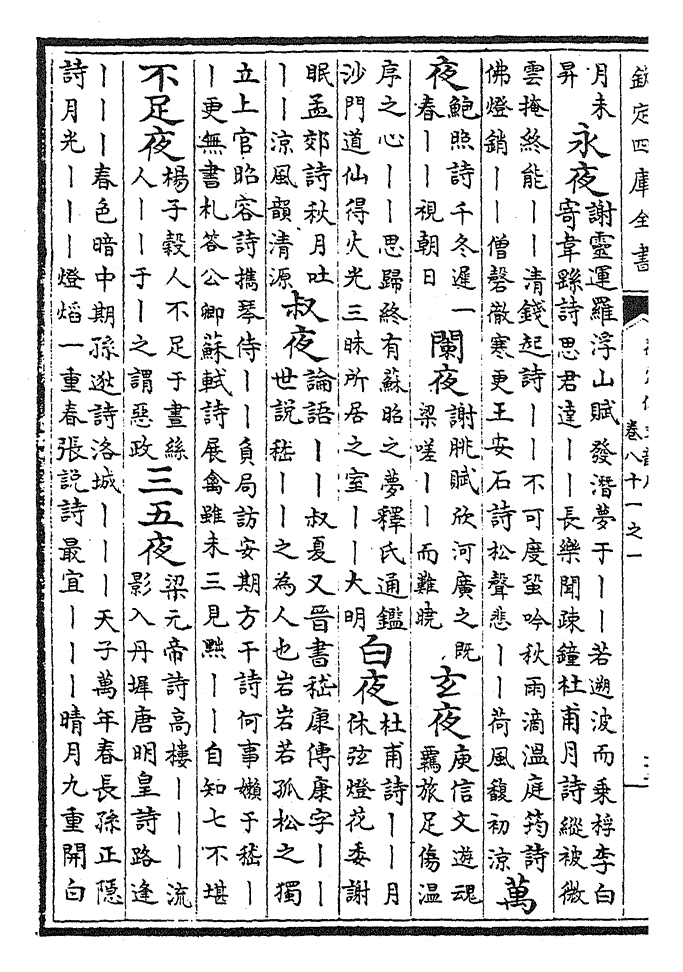 欽定四庫全書
卷八十一之一
月未
昇
永夜
謝靈運羅浮山賦發潛夢于丨丨若遡波而乘桴李白
寄韋繇詩思君達丨丨長樂聞疎鐘杜甫月詩縱被微
雲掩終能丨丨清錢起詩丨丨不可度蛩吟秋雨滴溫庭筠詩
佛燈銷丨丨僧磬徹寒更王安石詩松聲悲丨丨荷風馥初涼
萬
夜
鮑照詩千冬遲一
春丨丨視朝日
闌夜
謝朓賦欣河廣之既
梁嗟丨丨而難曉
玄夜
庾信文遊魂
羈旅足傷温
序之心丨丨思歸終有蘇昭之夢釋氏通鑑
沙門道仙得火光三昧所居之室丨丨大明
白夜
杜甫詩丨丨月
休弦燈花委謝
眠孟郊詩秋月吐
丨丨涼風韻清源
叔夜
論語丨丨叔夏又晉書嵇康傳康字丨丨
世說嵇丨丨之為人也岩岩若孤松之獨
立上官昭容詩攜琴侍丨丨負局訪安期方干詩何事嬾于嵇丨
丨更無書札答公卿蘇軾詩展禽雖未三見黜丨丨自知七不堪
不足夜
楊子穀人不足于晝絲
人丨丨于丨之謂惡政
三五夜
梁元帝詩高樓丨丨丨流
影入丹墀唐明皇詩路逢
丨丨丨春色暗中期孫逖詩洛城丨丨丨天子萬年春長孫正隱
詩月光丨丨丨燈熖一重春張說詩最宜丨丨丨晴月九重開白